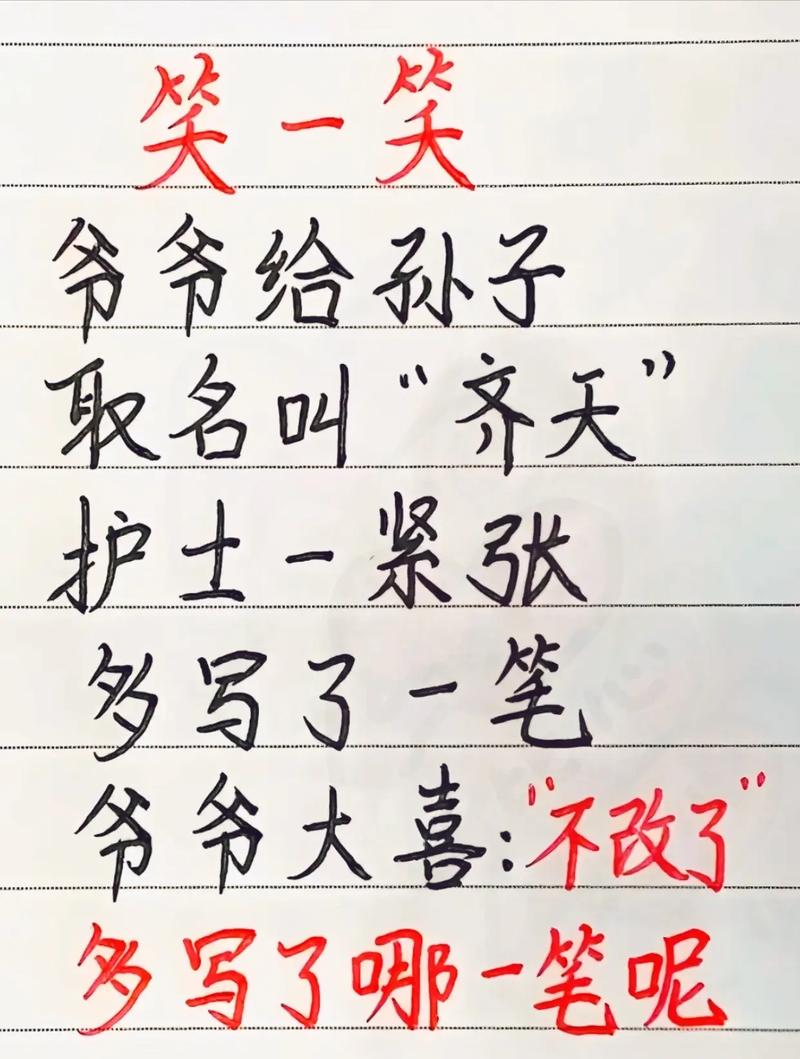 笑一笑
爷爷给孙子
取名叫“齐天”
护士一紧张
多写了一笔
爷爷大喜:“不改了”
多写了哪一笔呢